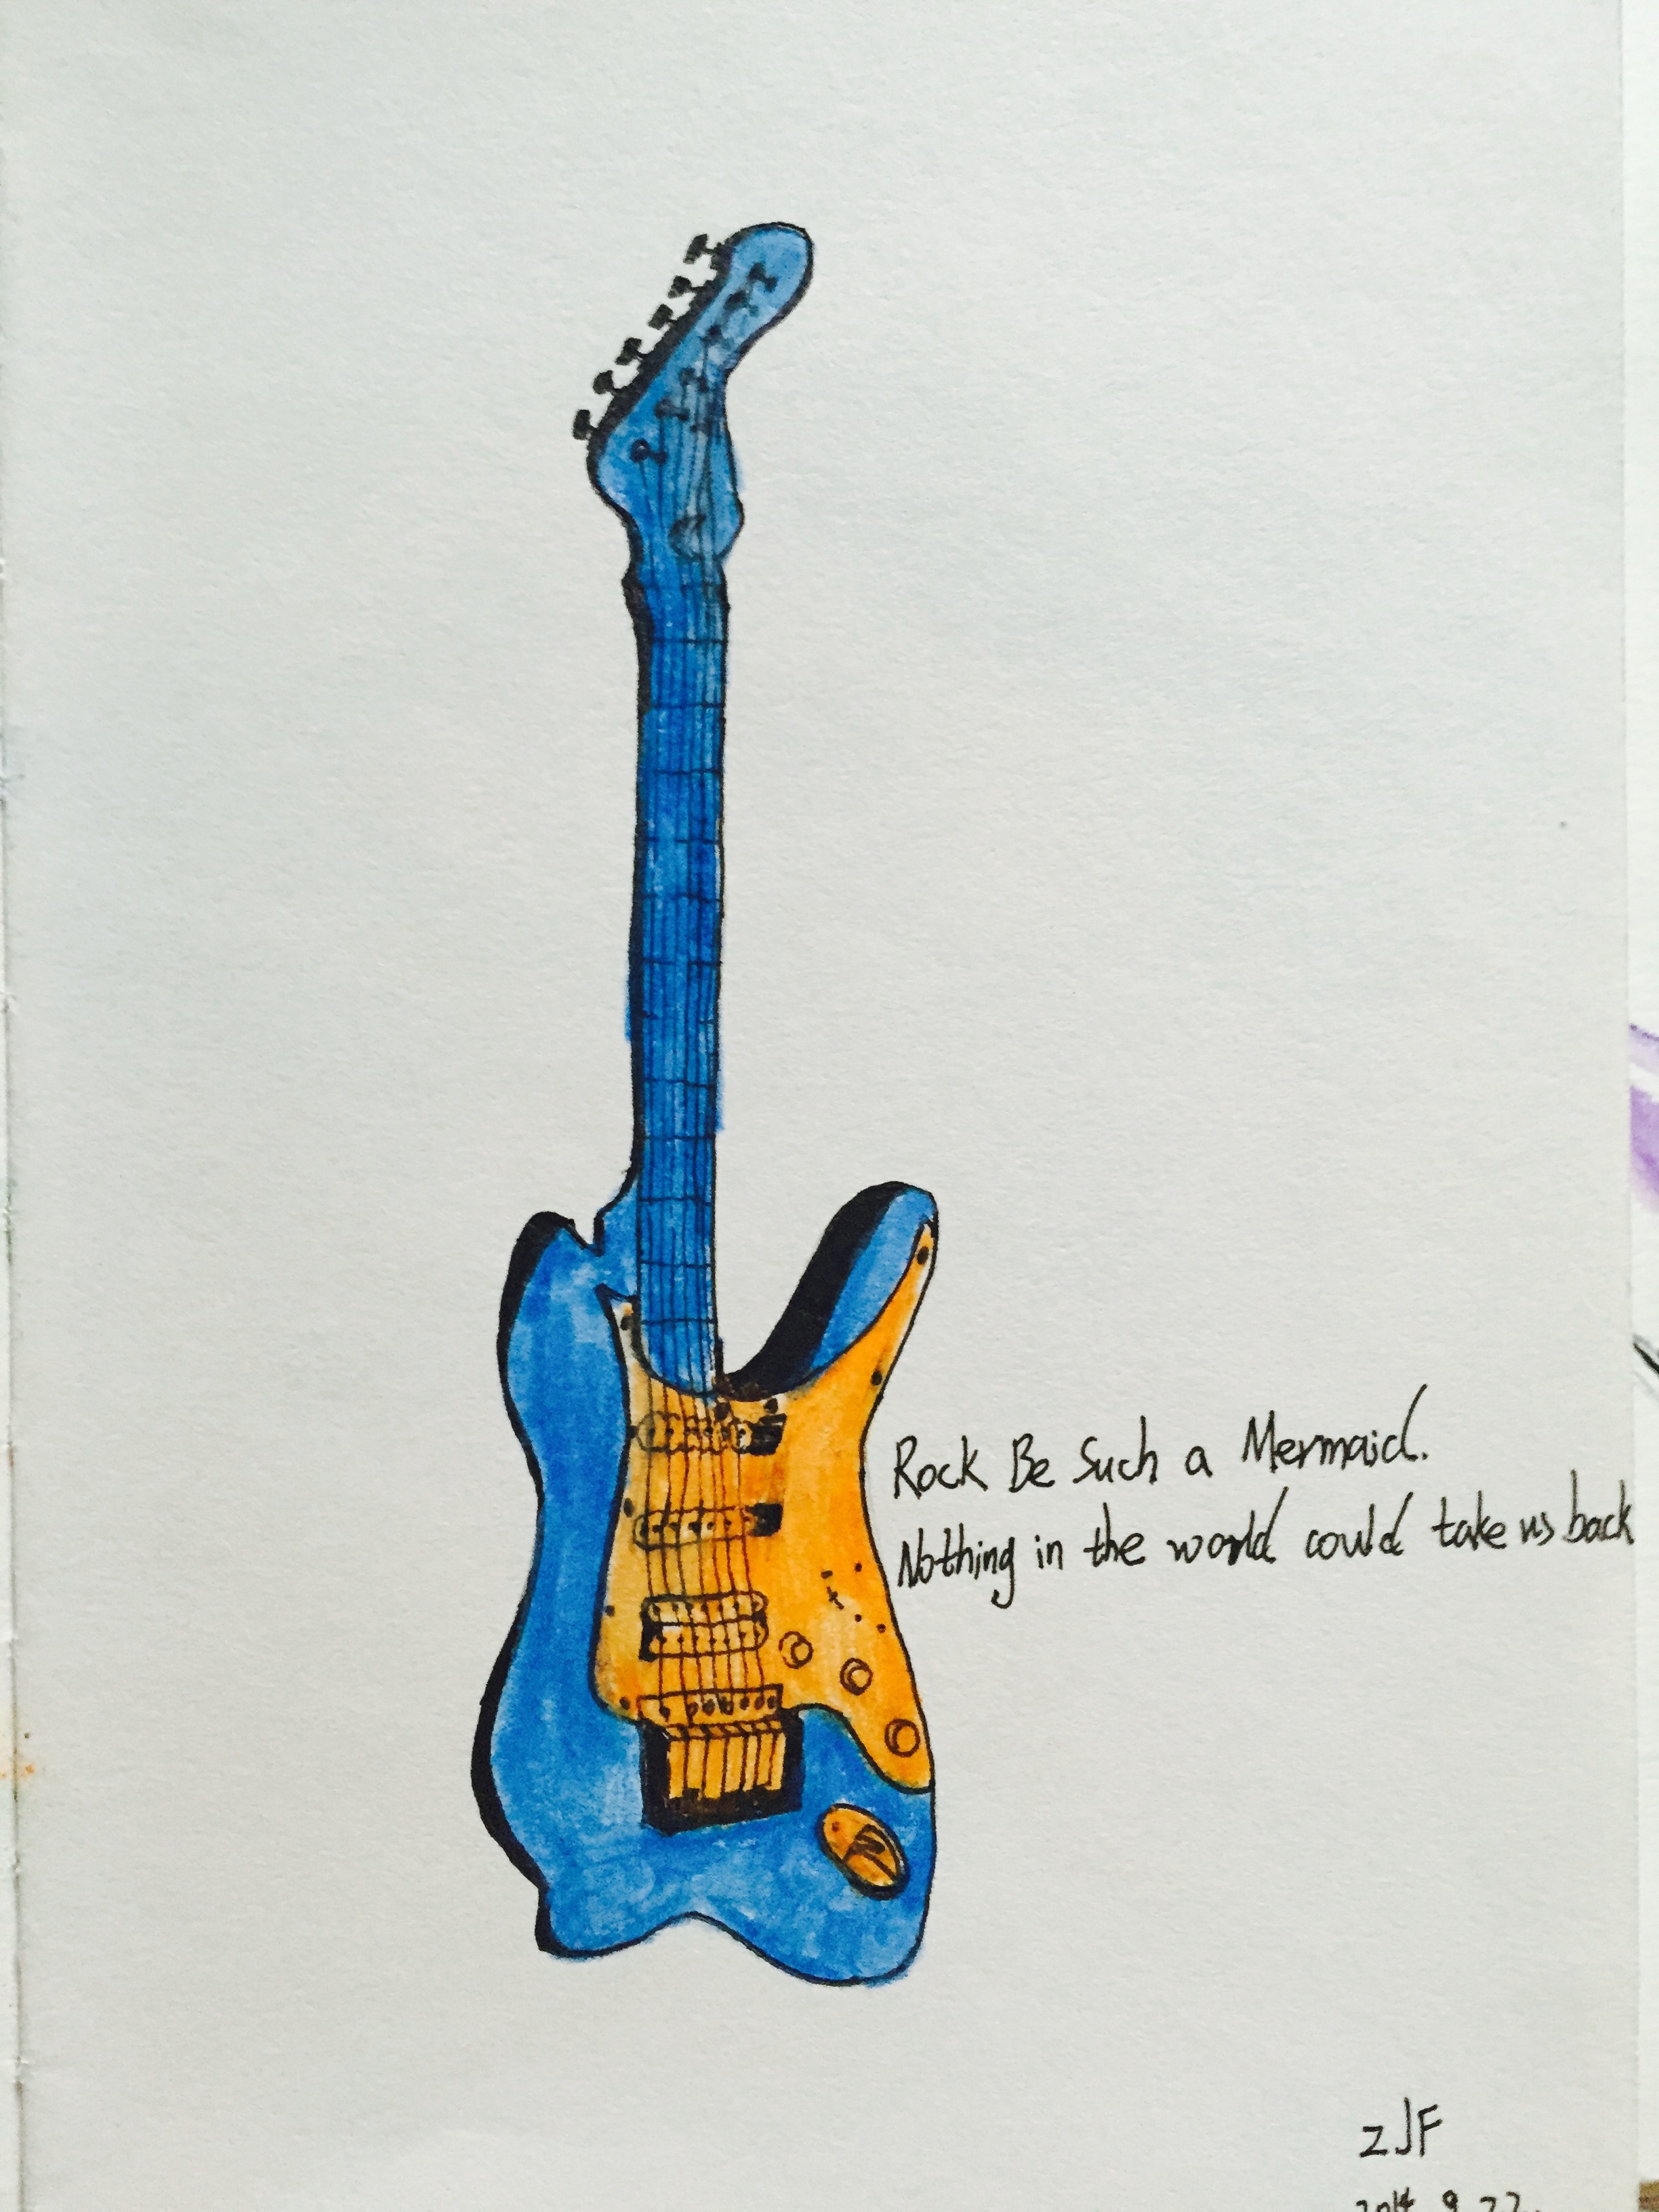 Rock Be Such a Mermaid.
Nothing in the world could take us back
ZJF
2014.9.22.